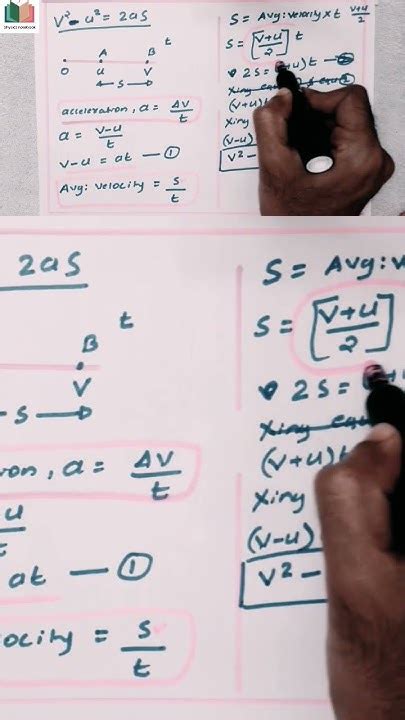 V² - u² = 2aS
t
O A B
u V
S
acceleration, a = ΔV/t
a = V-u/t
V-u = at — ①
Avg: velocity = s/t
S = Avg: velocity × t V+u/2
S = [V+u/2] t
2S = +u)t — ②
(V+u)
Xing
(V-u)
V² -
2aS
t
B
V
S
, a = ΔV/t
u
at — ①
ocity = s/t
S = Avg: v
S = [V+u/2]
2S =
(V+u)t
Xing
(V-u)
V² -